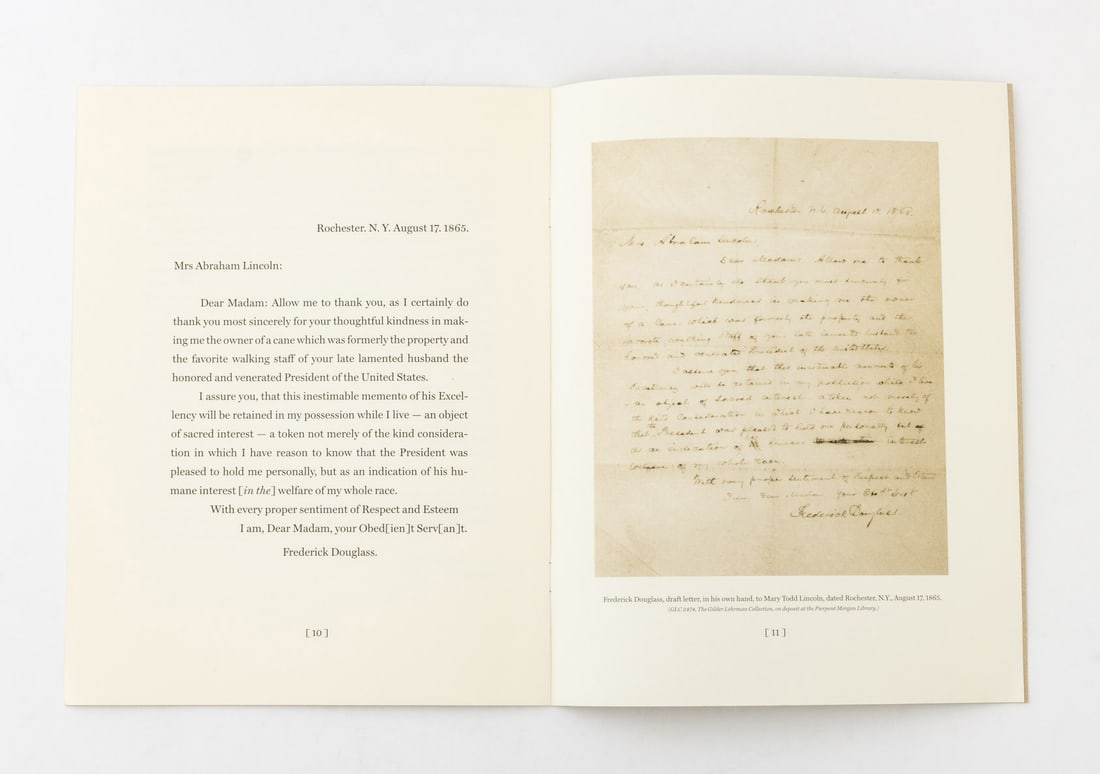 Rochester. N. Y. August 17. 1865.
Mrs Abraham Lincoln:
Dear Madam: Allow me to thank you, as I certainly do
thank you most sincerely for your thoughtful kindness in mak-
ing me the owner of a cane which was formerly the property and
the favorite walking staff of your late lamented husband the
honored and venerated President of the United States.
I assure you, that this inestimable memento of his Excel-
lency will be retained in my possession while I live — an object
of sacred interest — a token not merely of the kind considera-
tion in which I have reason to know that the President was
pleased to hold me personally, but as an indication of his hu-
mane interest [in the] welfare of my whole race.
With every proper sentiment of Respect and Esteem
I am, Dear Madam, your Obed[ien]t Serv[an]t.
Frederick Douglass.
[ 10 ]
Rochester. N. Y. August 17. 1865.
Mrs Abraham Lincoln:
Dear Madam: Allow me to thank
you, as I certainly do thank you most sincerely for
your thoughtful kindness in making me the owner
of a cane which was formerly the property and the
favorite walking staff of your late lamented husband the
honored and venerated President of the United States.
I assure you that this inestimable memento of his
Excellency will be retained in my possession while I live
– an object of sacred interest – a token not merely of
the kind consideration in which I have reason to know
that the President was pleased to hold me personally but as
as an indication of his humane interest
welfare of my whole race.
With every proper sentiment of Respect and Esteem
I am, Dear Madam, your Obedt Servt
Frederick Douglass.
Frederick Douglass, draft letter, in his own hand, to Mary Todd Lincoln, dated Rochester, N.Y., August 17, 1865.
(GLC 2474, The Gilder Lehrman Collection, on deposit at the Pierpont Morgan Library.)
[ 11 ]